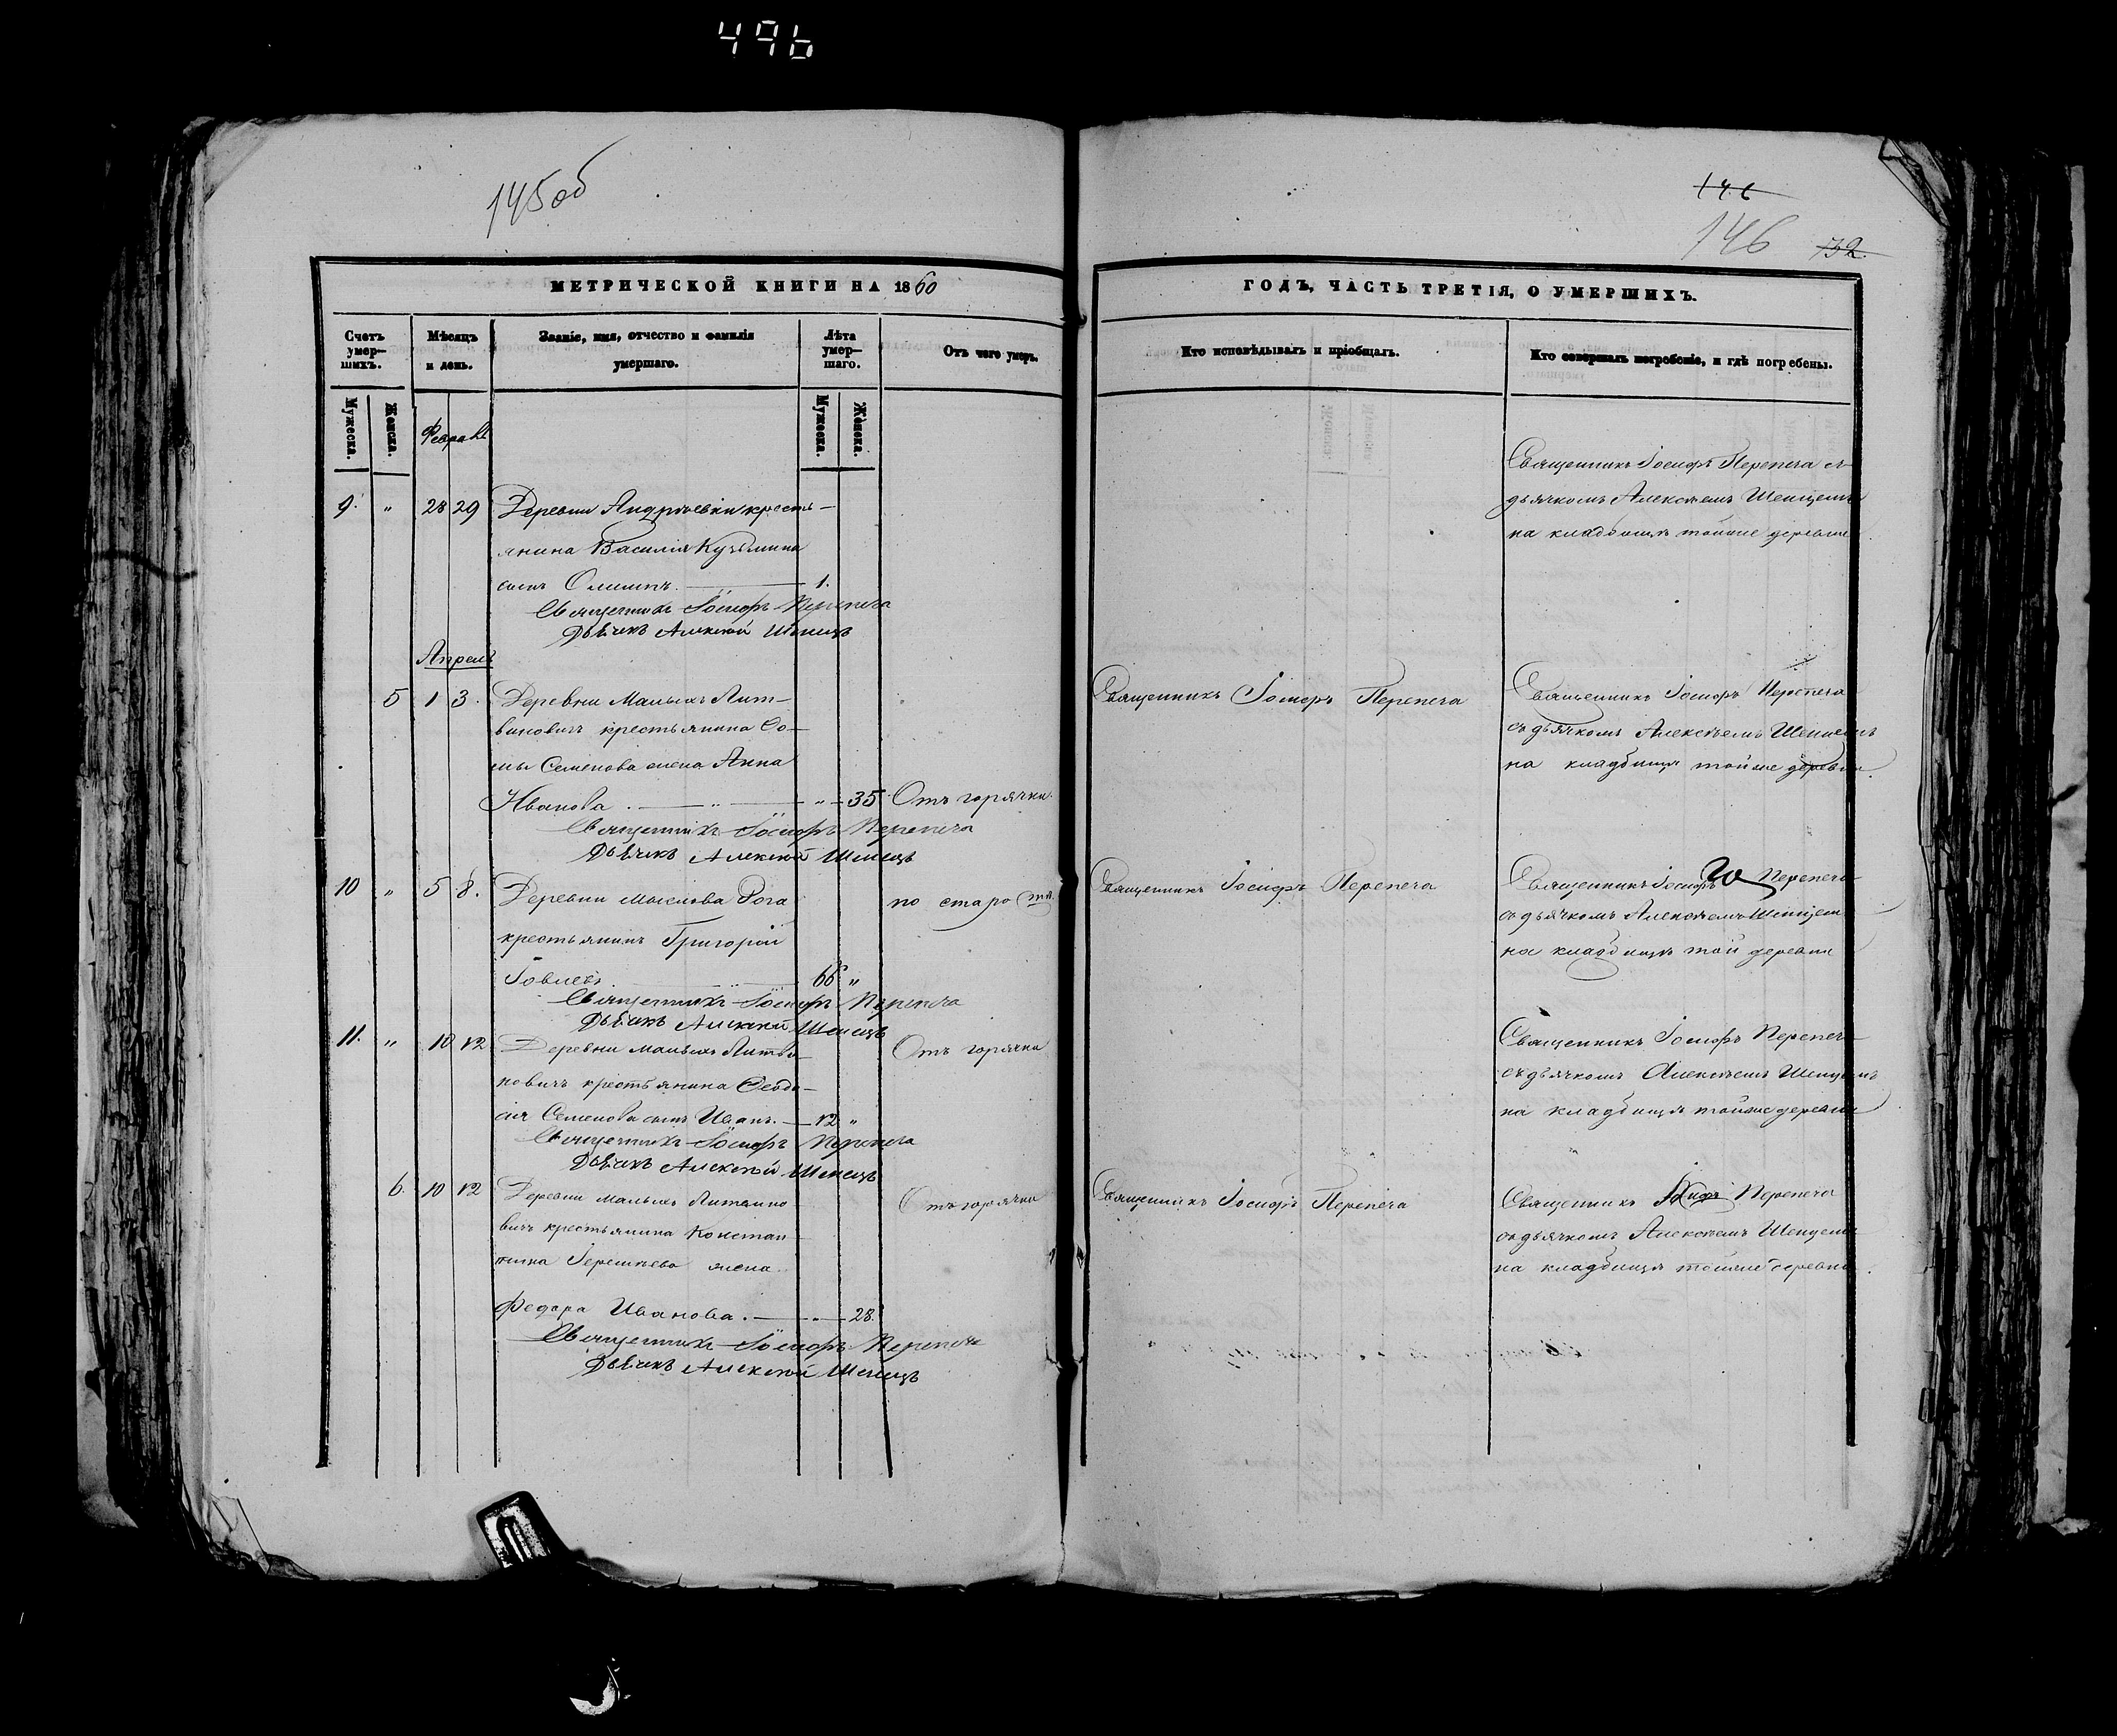 496
145об
146
146
732.
МЕТРИЧЕСКОЙ КНИГИ НА 1860
ГОДЪ, ЧАСТЬ ТРЕТІЯ, О УМЕРШИХЪ.
Счетъ умер-
шихъ.
Мѣсяцъ
и день.
Званіе, имя, отчество и фамилія
умершаго.
Лѣта
умер-
шаго.
Отъ чего умеръ.
Кто исповѣдывалъ и пріобщалъ.
Кто совершалъ погребеніе, и гдѣ погребены.
Мужеска.
Женска.
Мужеска.
Женска.
Февраль
9. " 28 29 Деревни Андреевки кресть-
янина Василія Кузьмина
сынъ 1.
Священникъ Іосифъ Перепеча
Дьячекъ Алексѣй Шепецъ
Священникъ Іосифъ Перепеча съ
дьячкомъ Алексѣемъ
на кладбищѣ тойже деревни
Апрель
5 1 3. Деревни Малыхъ Лит-
виновичъ крестьянина Ѳо-
мы Семенова жена Анна
Иванова " 35 Отъ горячки.
Священникъ Іосифъ Перепеча
Дьячекъ Алексѣй Шепецъ
Священникъ Іосифъ Перепеча
Священникъ Іосифъ Перепеча
съ дьячкомъ Алексѣемъ
на кладбищѣ тойже деревни.
10 " 5 8. Деревни Мыслова Рога по старости.
крестьянинъ Григорій
66 "
Священникъ Іосифъ Перепеча
Дьячекъ Алексѣй Шепецъ
Священникъ Іосифъ Перепеча
Священникъ Іосифъ Перепеча
съ дьячкомъ Алексѣемъ
на кладбищѣ той деревни
11. " 10 12 Деревни Малыхъ Литви- Отъ горячки
новичъ крестьянина Ѳеодо-
сія Семенова сынъ Иванъ. 12 "
Священникъ Іосифъ Перепеча
Дьячекъ Алексѣй Шепецъ
Священникъ Іосифъ Перепеча
съ дьячкомъ Алексѣемъ
на кладбищѣ тойже деревни
6. 10 12 Деревни Малыхъ Литвино- Отъ горячки
вичъ крестьянина Констан-
тина жена
Федора Иванова. " 28.
Священникъ Іосифъ Перепеча
Дьячекъ Алексѣй Шепецъ
Священникъ Іосифъ Перепеча
Священникъ Іосифъ Перепеча
съ дьячкомъ Алексѣемъ
на кладбищѣ тойже деревни.